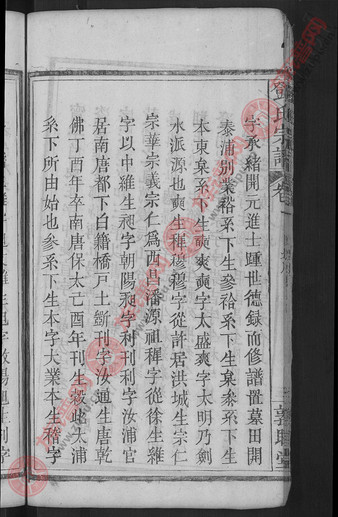 鄧氏宗譜
卷一
敦睦堂
字承緒開元進士踵世德録而修譜置墓田開
泰浦別業裕系下生參裕系下生㬎參系下生
本東㬎系下生奭爽奭字太盛爽字太明乃劍
水派源也奭生稺穆字從計居洪城生宗仁
宗華宗義宗仁爲西昌潘源祖稺字從徐生維
字以中維生昶字朝陽昶字利刊利字汝浦官
居南唐都下白籍橋戸土斷刊字汝通生唐乾
佛丁酉年卒南唐保太己酉年刊生毅此大浦
系下所由始也參系下生本字大業本生稽字